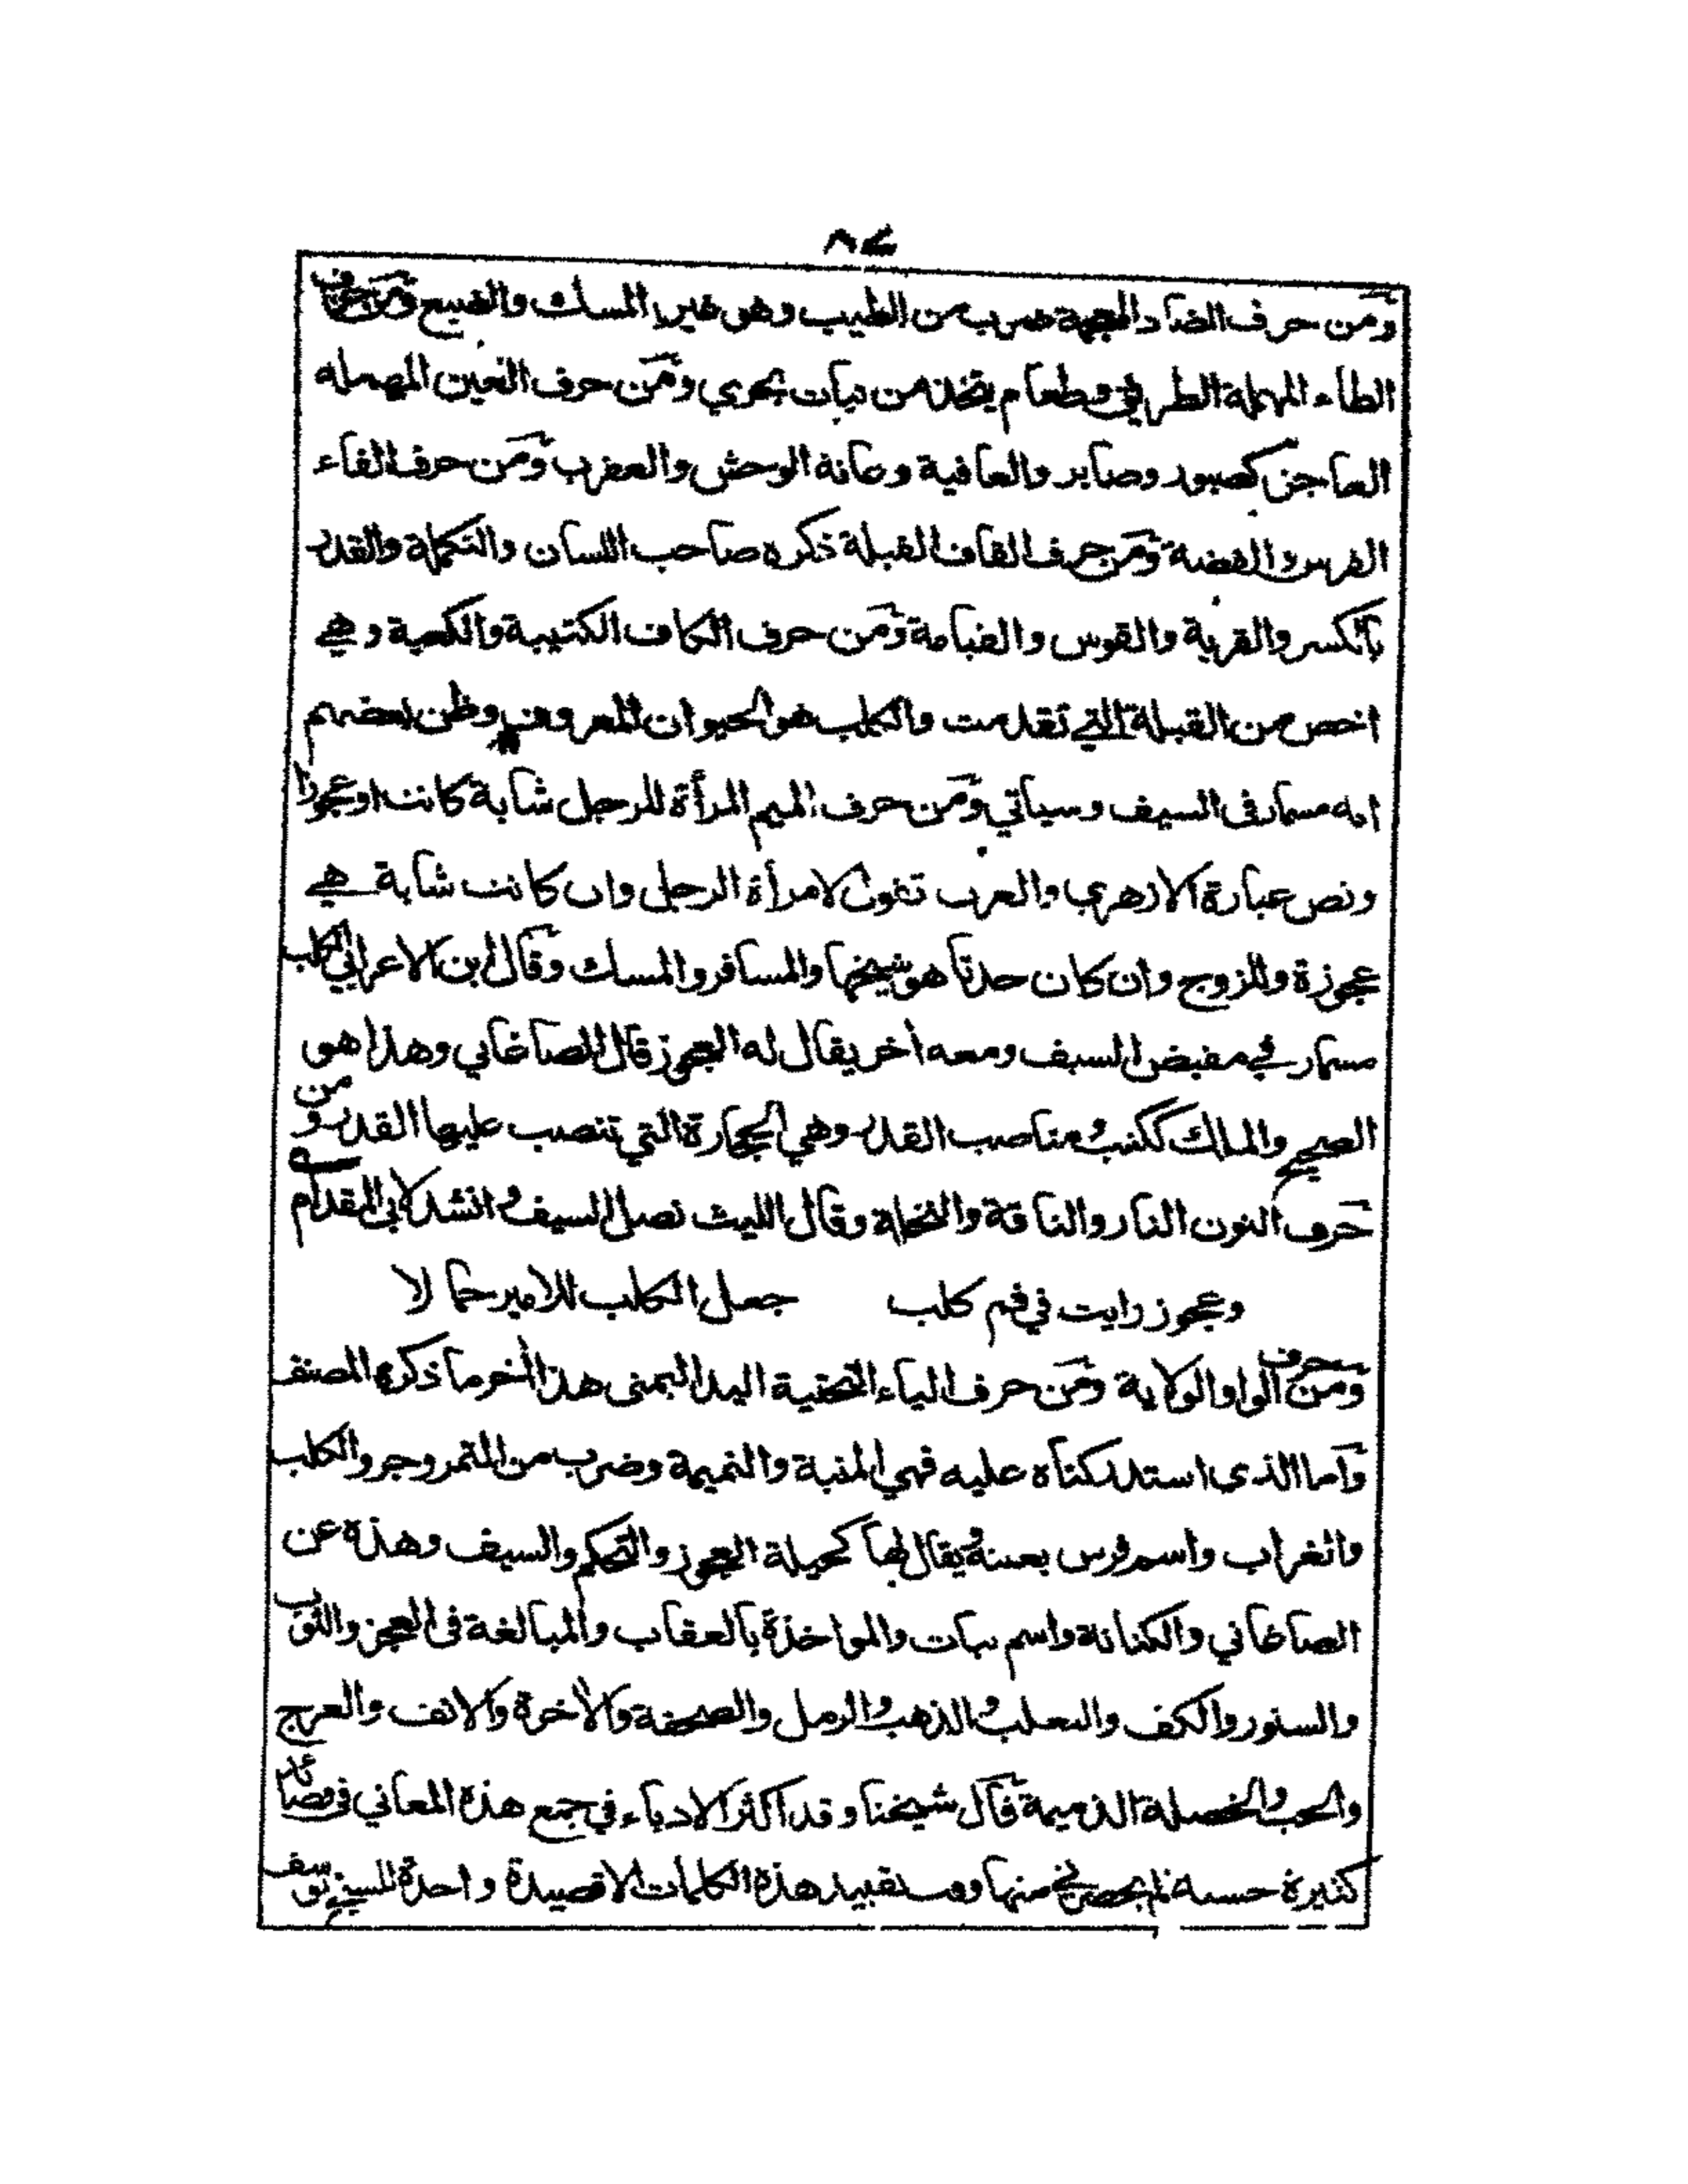 ٨٤
ومن حرف الضاد المعجمة ضرب من الطيب وهو غير المسك والضبع ومن حرف
الطاء المهملة الطريق وطعام يتخذ من نبات بحري ومن حرف العين المهمله
العاجز كصبور وصابر والعافية وعانة الوحش والعقرب ومن حرف الفاء
الفرس والفضة ومن حرف القاف القبلة ذكره صاحب اللسان والتكملة والقدر
بالكسر والقرية والقوس والقيامة ومن حرف الكاف الكتيبة والكعبة وهي
اخص من القبلة التي تقدمت والكلب هو الحيوان المعروف وظن بعضهم
انه مسمار فى السيف وسياتي ومن حرف الميم المرأة للرجل شابة كانت او عجوزا
ونص عبارة الازهري والعرب تقول لامرأة الرجل وان كانت شابة هي
عجوزة وللزوج وان كان حدثا هو شيخها والمسافر والمسك وقال ابن الاعرابي الكلب
مسمار في مقبض السيف ومعه أخر يقال له العجوز قال الصاغاني وهذا هو
الصحيح والملك ككتب ومناصب القدر وهي الحجارة التي تنصب عليها القدر ومن
حرف النون النار والناقة والنخلة وقال الليث نصل السيف وانشد لابي المقدام
وعجوز رايت في فم كلب جعل الكلب للامير حمالا
ومن حرف الواو الولاية ومن حرف الياء التحتية اليد اليمنى هذا أخر ما ذكره المصنف
وأما الذى استدركناه عليه فهي المنية والنميمة وضرب من التمر وجرو الكلب
والغراب واسم فرس بعينه ويقال لها كحيلة العجوز والتحكم والسيف وهذه عن
الصاغاني والكنانة واسم نبات والمواخذة بالعقاب والمبالغة فى العجز والثوب
والسنور والكف والثعلب والذهب والرمل والصحفة والأخرة والانف والعرج
والحب والخصلة الذميمة قال شيخنا وقد اكثر الادباء في جمع هذه المعاني في قصائد
كثيرة حسنه لم يحضرني منها وقت تقييد هذه الكلمات الا قصيدة واحدة للشيخ يوسف